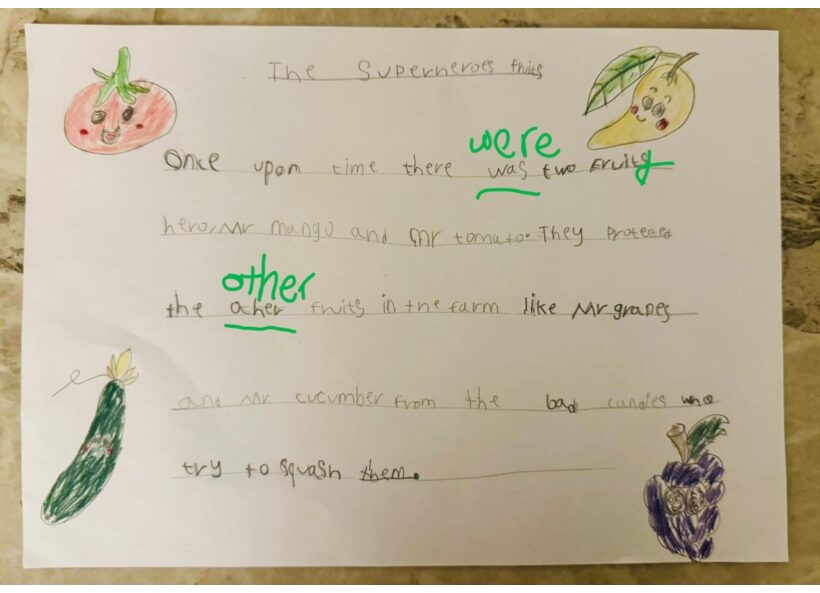 The Superheroes fruits
were
Once upon time there was two fruits
hero, Mr mango and Mr tomato. They protected
other
the ather fruits in the farm like Mr grapes
and Mr cucumber from the bad candies who
try to squash them.